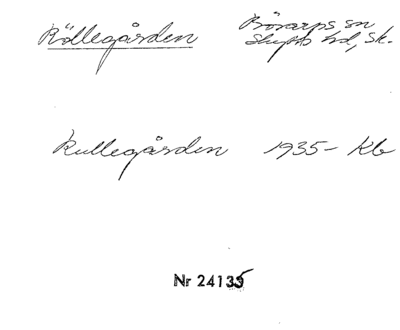 Röllegården Börarps sn
Skytts hd, Sk.
Kullegården 1935- Kb
Nr 24135